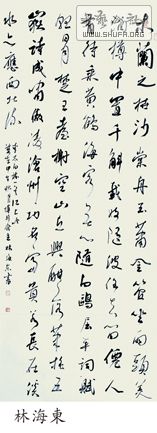 木蘭之枻沙棠舟玉簫金管坐兩頭美
酒樽中置千斛載妓隨波任去留仙人
有待乘黃鶴海客無心隨白鷗屈平詞賦
懸日月楚王臺榭空山丘興酣落筆搖五
嶽詩成笑傲凌滄洲功名富貴若長在漢
水亦應西北流
林海東書
林海東